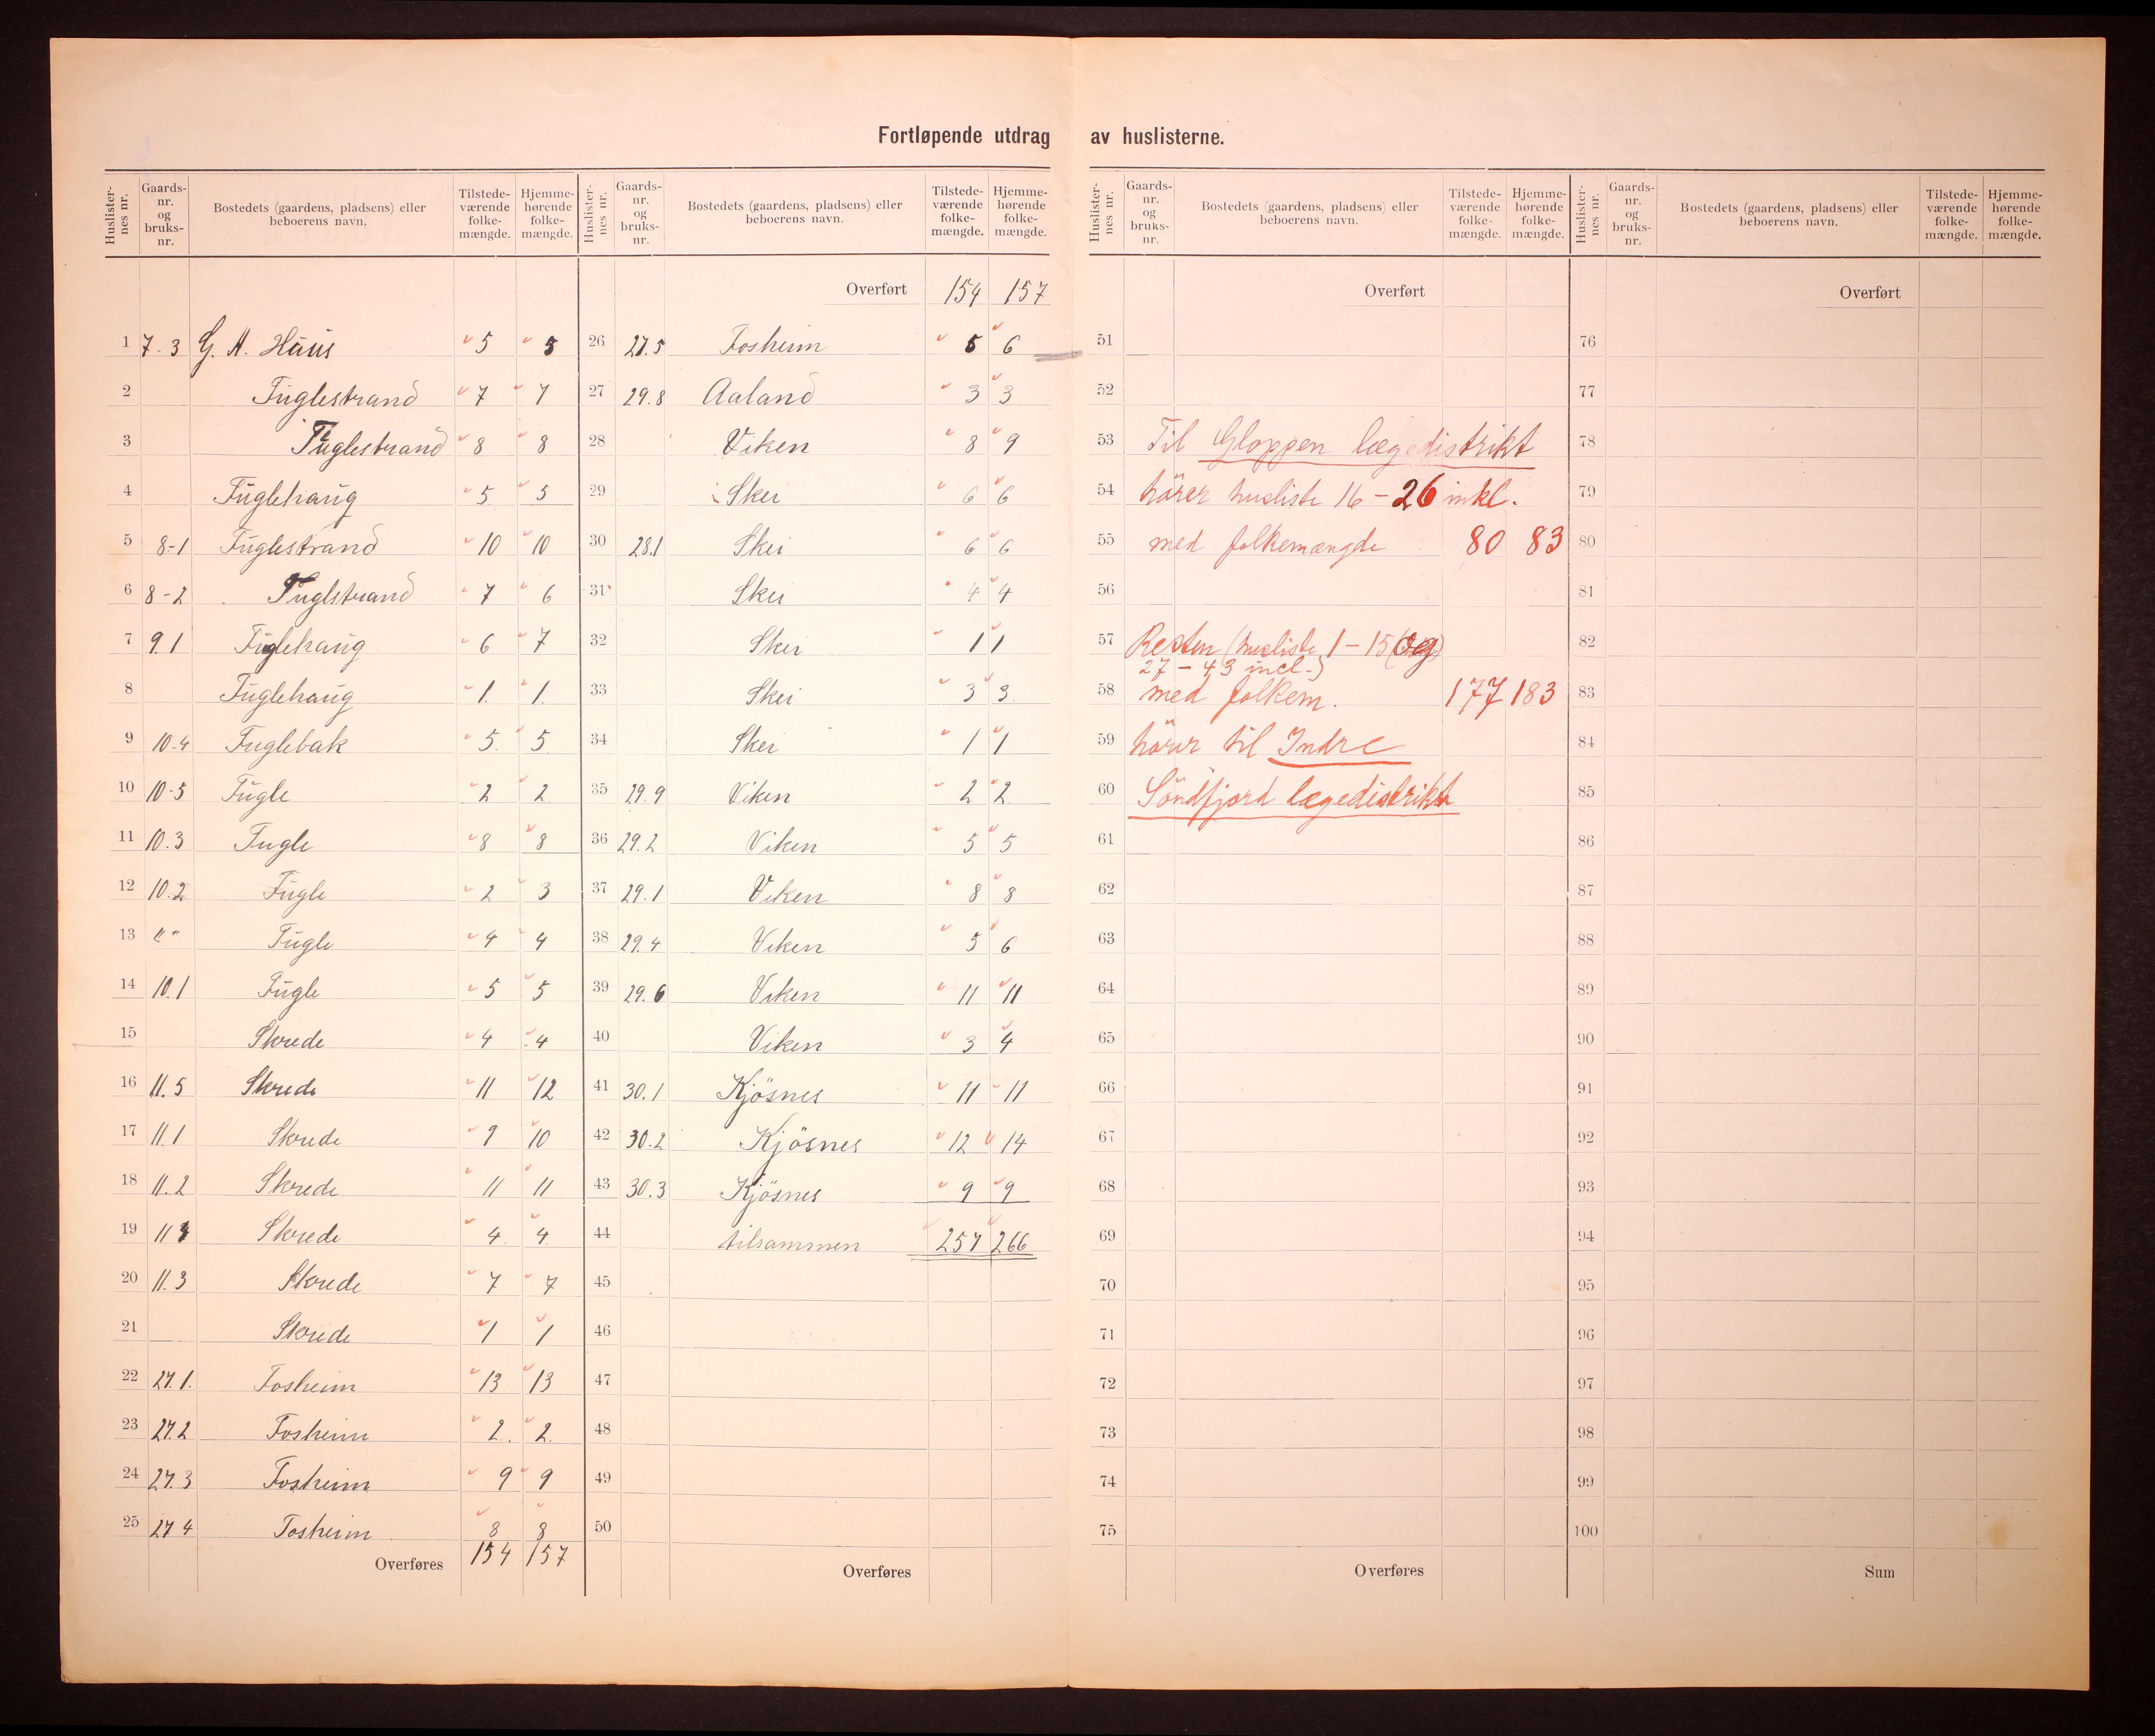 Fortløpende utdrag av huslisterne.
Huslisternes nr. Gaards-nr. og bruks-nr. Bostedets (gaardens, pladsens) eller beboerens navn. Tilstedeværende folkemængde. Hjemmehørende folkemængde.
1 7-3 G. A. Haus 5 5
2 Fuglestrand 7 7
3 Fuglestrand 8 8
4 Fuglehaug 5 5
5 8-1 Fuglestrand 10 10
6 8-2 Fuglstrand 7 6
7 9.1 Fuglehaug 6 7
8 Fuglehaug 1. 1.
9 10-4 Fuglebak 5. 5.
10 10-5 Fugle 2 2
11 10.3 Fugle 8 8
12 10.2 Fugle 2 3
13 " " Fugle 4 4
14 10.1 Fugle 5 5
15 Skrede 4 4
16 11.5 Skrede 11 12
17 11.1 Skrede 9 10
18 11.2 Skrede 11 11
19 11 Skrede 4. 4.
20 11.3 Skrede 7 7
21 Skrede 1 1
22 27.1. Fosheim 13 13
23 27.2 Fosheim 2. 2.
24 27.3 Fosheim 9 9
25 27 4 Fosheim 8 8
Overføres 154 157
Huslisternes nr. Gaards-nr. og bruks-nr. Bostedets (gaardens, pladsens) eller beboerens navn. Tilstedeværende folkemængde. Hjemmehørende folkemængde.
Overført 154 157
26 27.5 Fosheim 5 6
27 29.8 Aaland 3 3
28 Viken 8 9
29 Skei 6 6
30 28.1 Skei 6 6
31 Skei 4 4
32 Skei 1 1
33 Skei 3 3.
34 Skei 1 1
35 29.9 Viken 2 2.
36 29.2 Viken 5 5
37 29.1 Viken 8 8
38 29.4 Viken 5 6
39 29.6 Viken 11 11
40 Viken 3 4
41 30.1 Kjösnes 11 11
42 30.2 Kjösnes 12 14
43 30.3 Kjösnes 9 9
44 tilsammen 257 266
45
46
47
48
49
50
Overføres
Huslisternes nr. Gaards-nr. og bruks-nr. Bostedets (gaardens, pladsens) eller beboerens navn. Tilstedeværende folkemængde. Hjemmehørende folkemængde.
Overført
51
52
53 Til Gloppen lægedistrikt
54 hörer husliste 16-26 inkl.
55 med folkemængde 80 83
56
57 Resten (husliste 1-15 og
27-43 incl.)
58 med folkem. 177 183
59 hörer til Indre
60 Söndfjord lægedistrikt
61
62
63
64
65
66
67
68
69
70
71
72
73
74
75
Overføres
Huslisternes nr. Gaards-nr. og bruks-nr. Bostedets (gaardens, pladsens) eller beboerens navn. Tilstedeværende folkemængde. Hjemmehørende folkemængde.
Overført
76
77
78
79
80
81
82
83
84
85
86
87
88
89
90
91
92
93
94
95
96
97
98
99
100
Sum